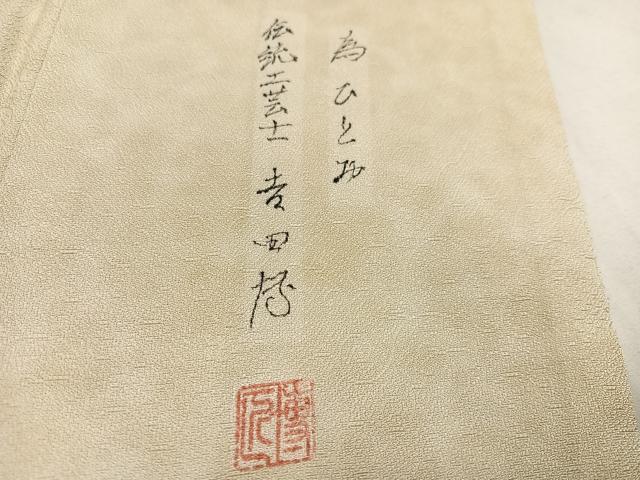 為 ひとみ
伝統工芸士 吉田